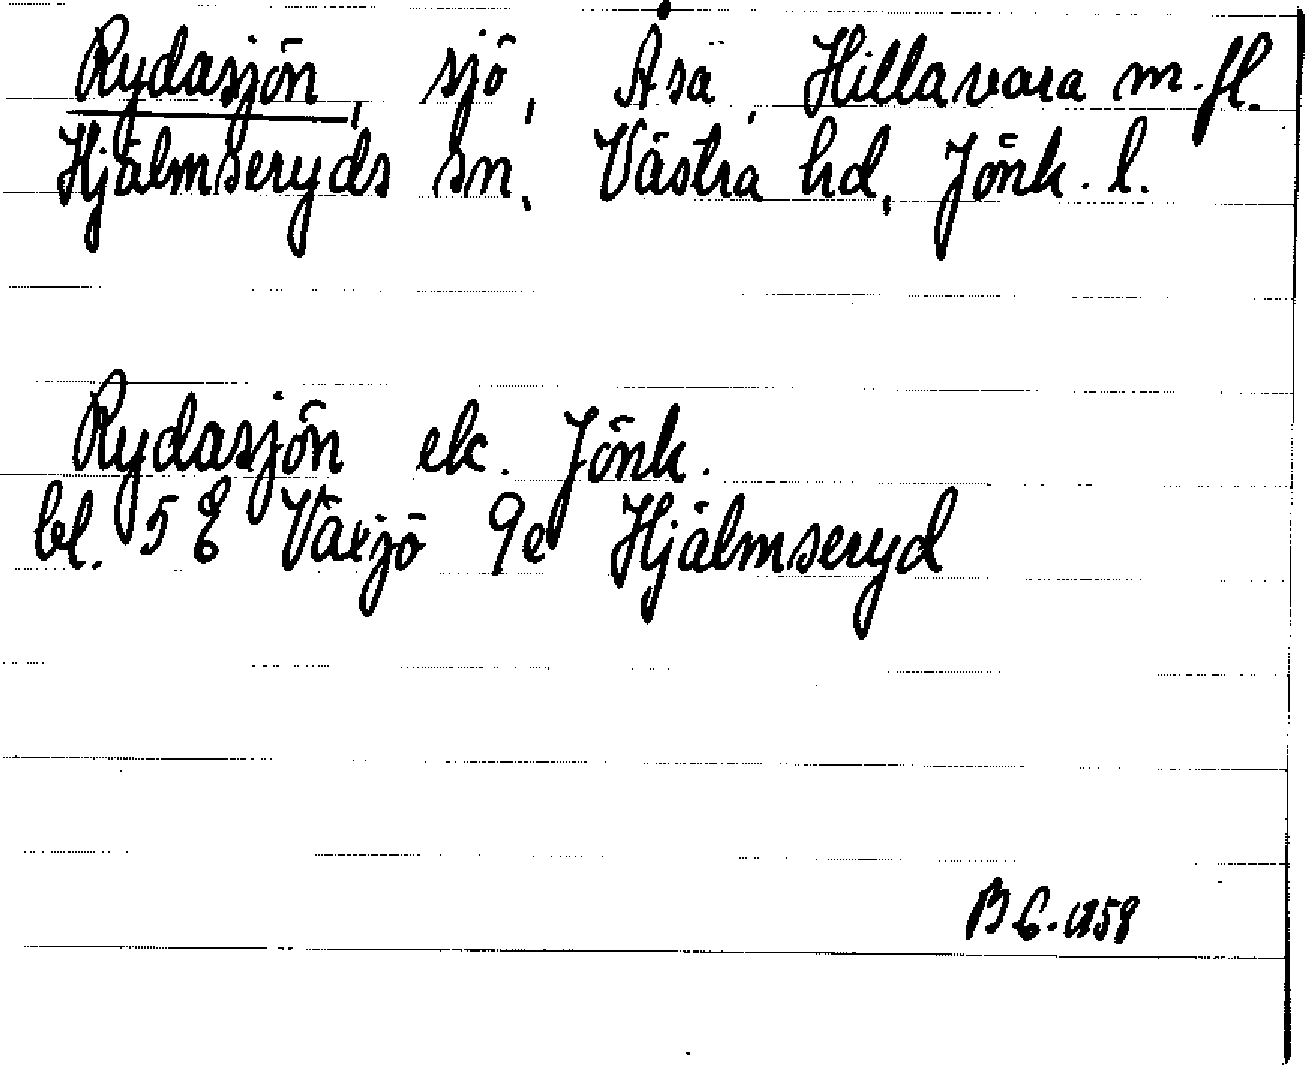 Rydasjön, sjö, Åsa, Hillavara m.fl.
Hjälmseryds sn, Västra hd, Jönk. l.
Rydasjön ek. Jönk.
bl. 5 E Växjö 9e Hjälmseryd